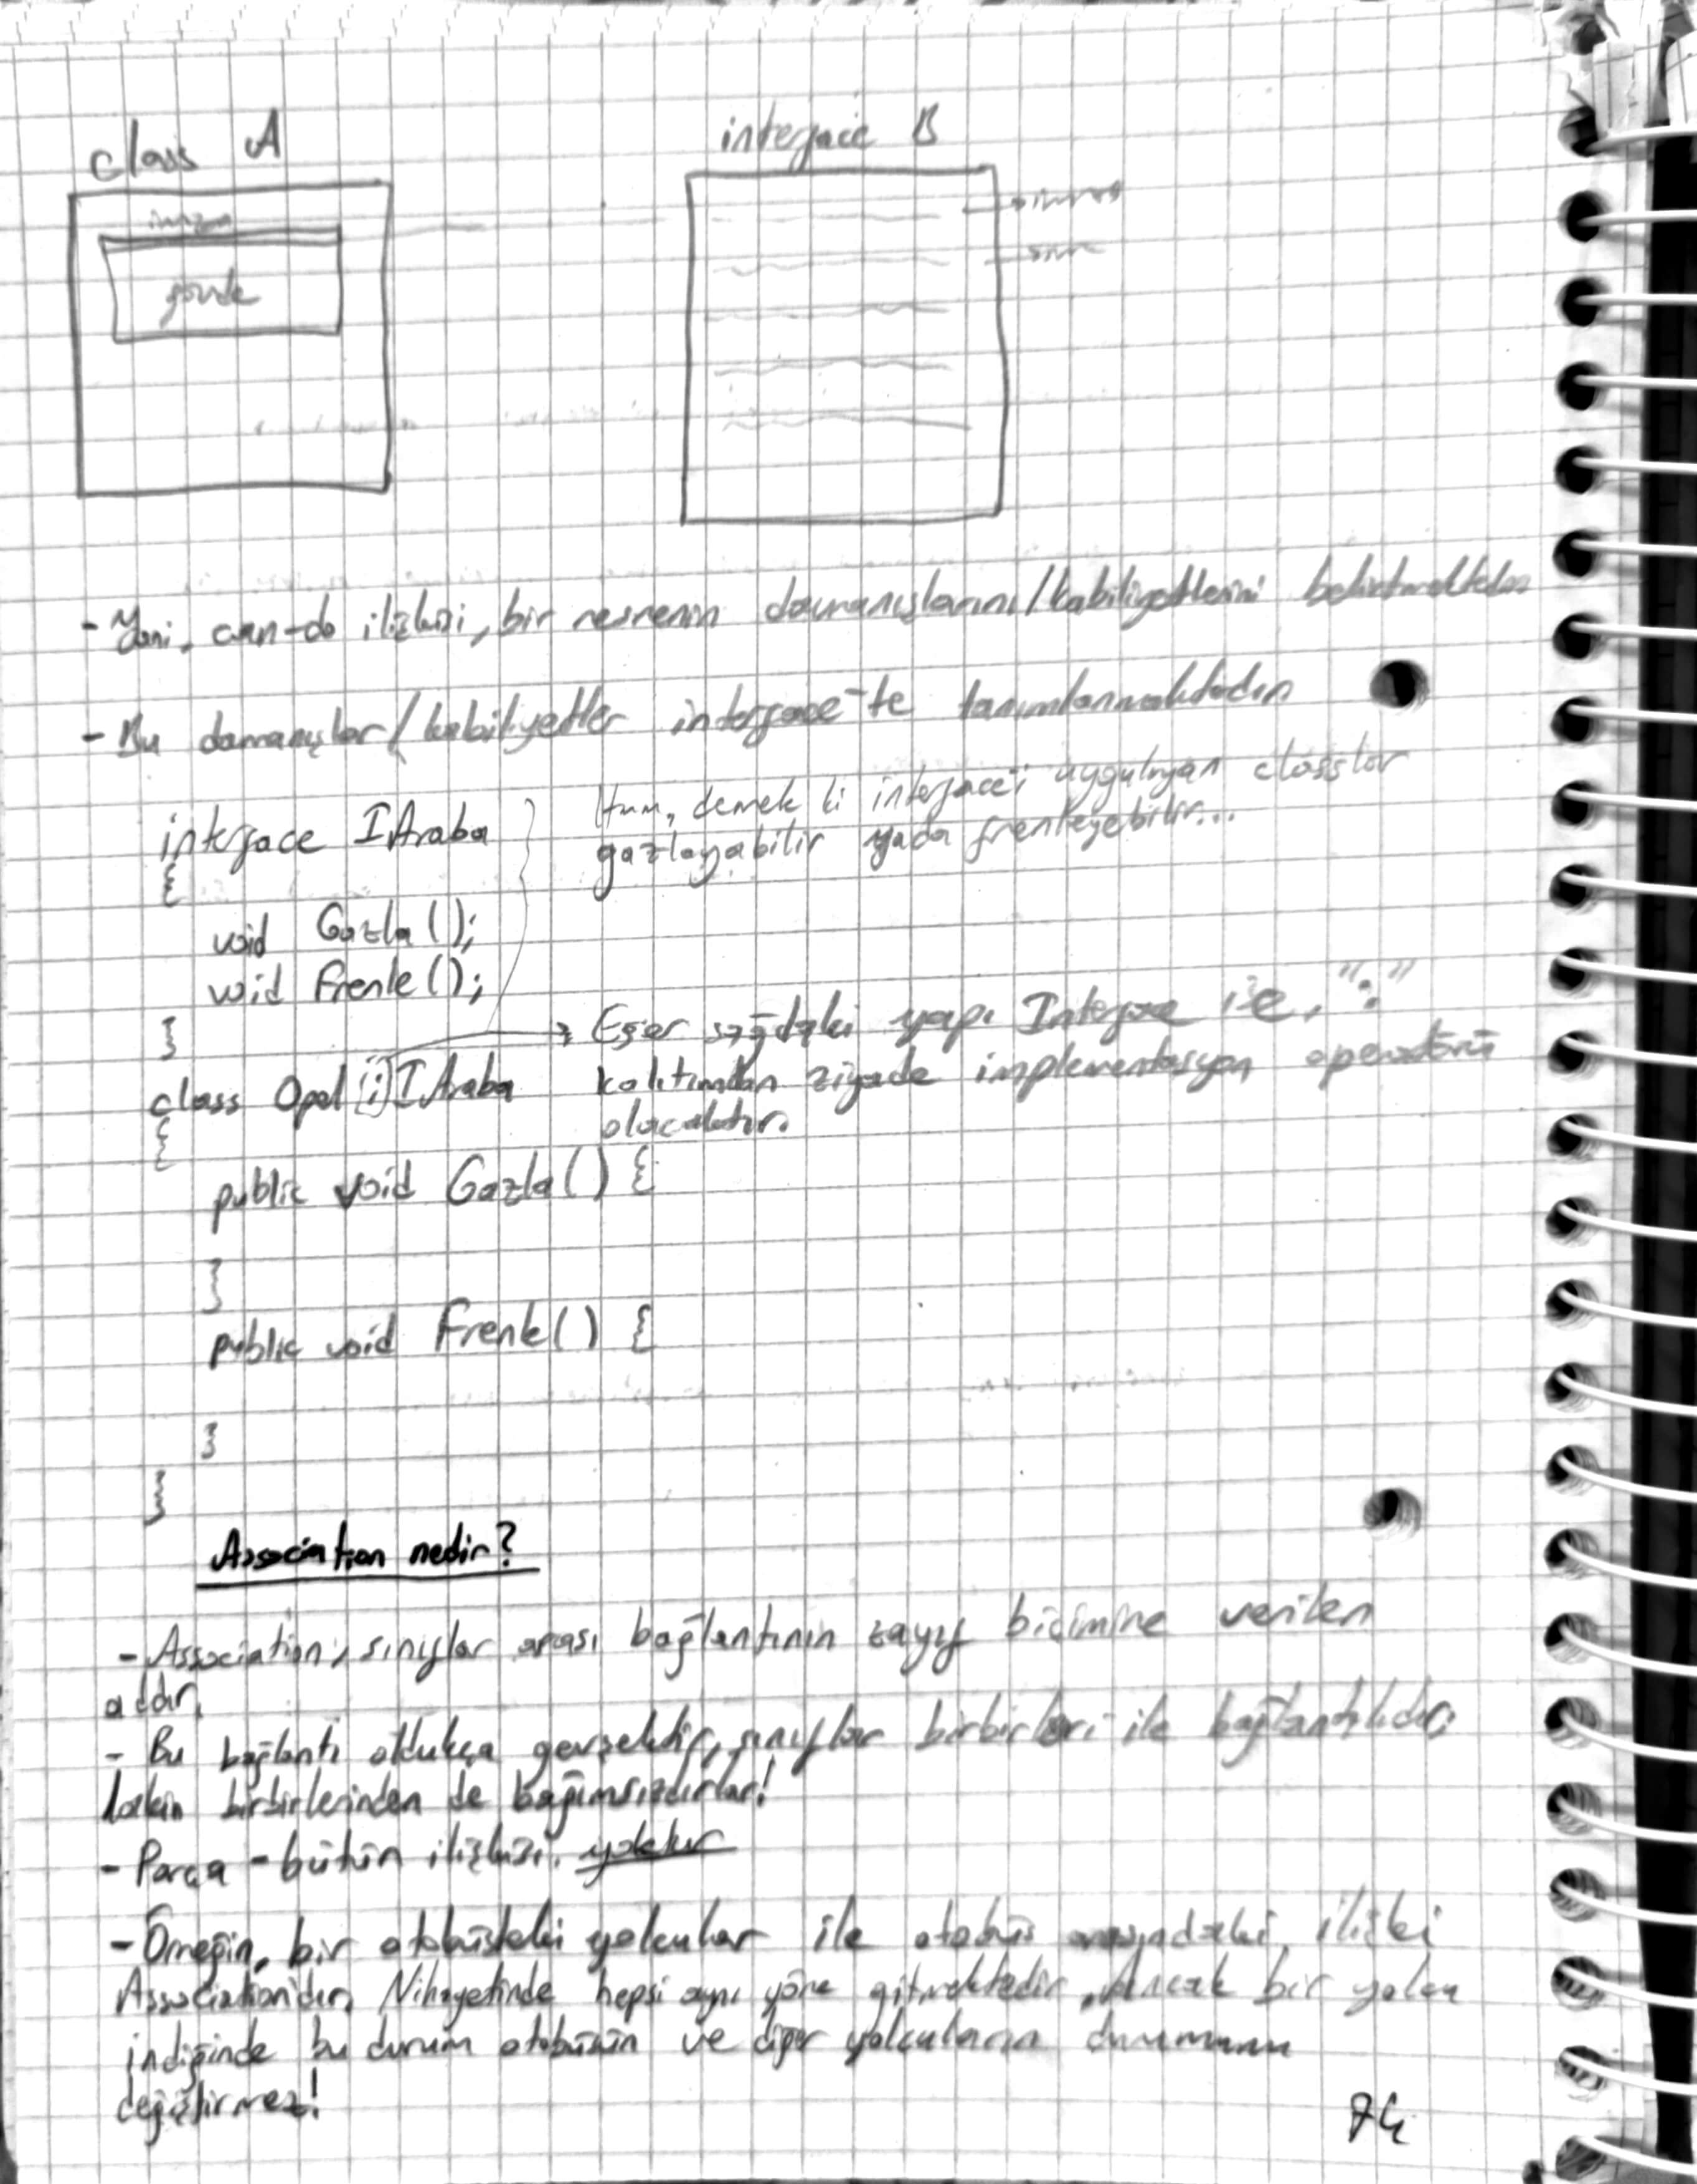 class A
interface B
imza
gövde
imza
- Yani, can-do ilişkisi, bir nesnenin davranışlarını/kabiliyetlerini belirtmektedir
- Bu davranışlar/kabiliyetler interface'te tanımlanmaktadır
interface IAraba
{
void Gazla();
void Frenle();
}
Hım, demek ki interface'i uygulayan classlar
gazlayabilir yada frenleyebilir...
class Opel : IAraba
{
public void Gazla() {
}
public void Frenle() {
}
}
Eğer sağdaki yapı Interface ise, ":"
kalıtımdan ziyade implementasyon operatörü
olacaktır.
Association nedir?
- Association, sınıflar arası bağlantının zayıf biçimine verilen
addır.
- Bu bağlantı oldukça gevşektir, sınıflar birbirleri ile bağlantılıdır
lakin birbirlerinden de bağımsızdırlar!
- Parça - bütün ilişkisi yoktur
- Örneğin, bir otobüsteki yolcular ile otobüs arasındaki ilişki
Association'dır. Nihayetinde hepsi aynı yöne gitmektedir. Ancak bir yolcu
indiğinde bu durum otobüsün ve diğer yolcuların durumunu
değiştirmez!
74